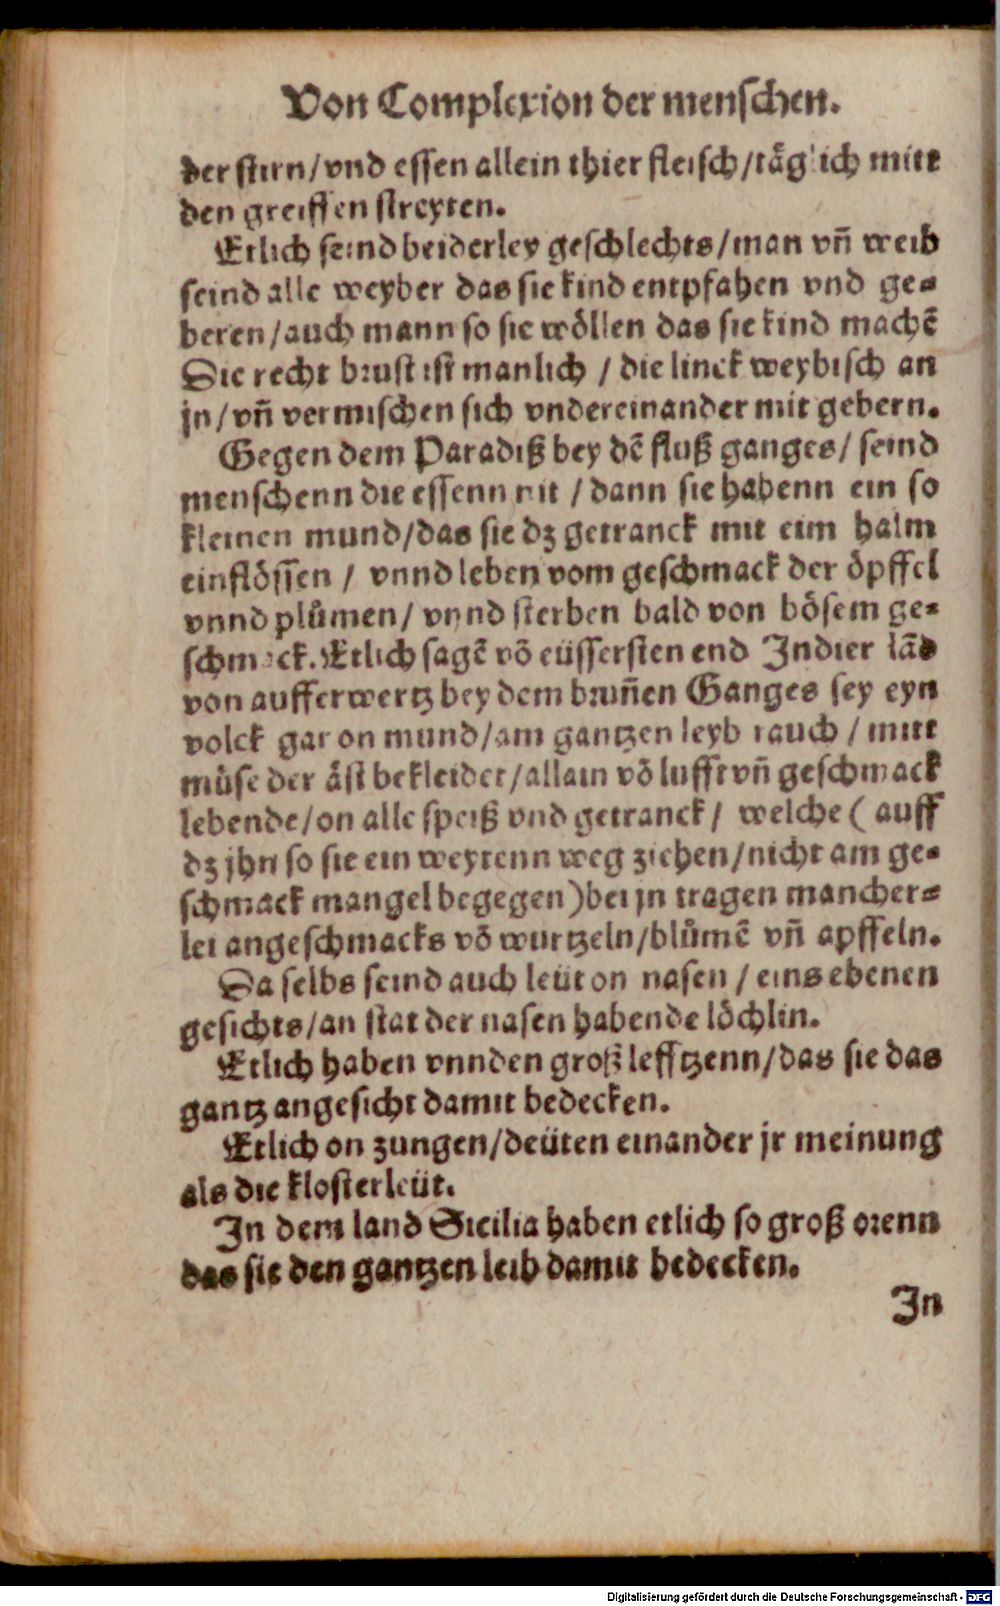 Von Complexion der menschen.
der stirn/vnd essen allein thier fleisch/täglich mitt
den greiffen streyten.
Etlich seind beiderley geschlechts/man vñ weib
seind alle weyber das sie kind entpfahen vnd ge=
beren/auch mann so sie wöllen das sie kind machē
Die recht brust ist manlich / die linck weybisch an
jn/vñ vermischen sich vndereinander mit gebern.
Gegen dem Paradiß bey dē fluß ganges/ seind
menschenn die essenn nit / dann sie habenn ein so
kleinen mund/das sie dz getranck mit eim halm
einflössen / vnnd leben vom geschmack der öpffel
vnnd plůmen/ vnnd sterben bald von bösem ge=
schmack. Etlich sagē vō eüssersten end Indier lād
von aufferwertz bey dem bruñen Ganges sey eyn
volck gar on mund/am gantzen leyb rauch / mitt
müse der äst bekleidet/allain vō lufft vñ geschmack
lebende/on alle speiß vnd getranck/ welche ( auff
dz jhn so sie ein weytenn weg ziehen/nicht am ge=
schmack mangel begegen ) bei jn tragen mancher=
lei angeschmacks vō wurtzeln/blůmē vñ apffeln.
Da selbs seind auch leüt on nasen / eins ebenen
gesichts/an stat der nasen habende löchlin.
Etlich haben vnnden groß lefftzenn/das sie das
gantz angesicht damit bedecken.
Etlich on zungen/deüten einander jr meinung
als die klosterleüt.
In dem land Sicilia haben etlich so groß orenn
das sie den gantzen leib damit bedecken.
In
Digitalisierung gefördert durch die Deutsche Forschungsgemeinschaft - DFG